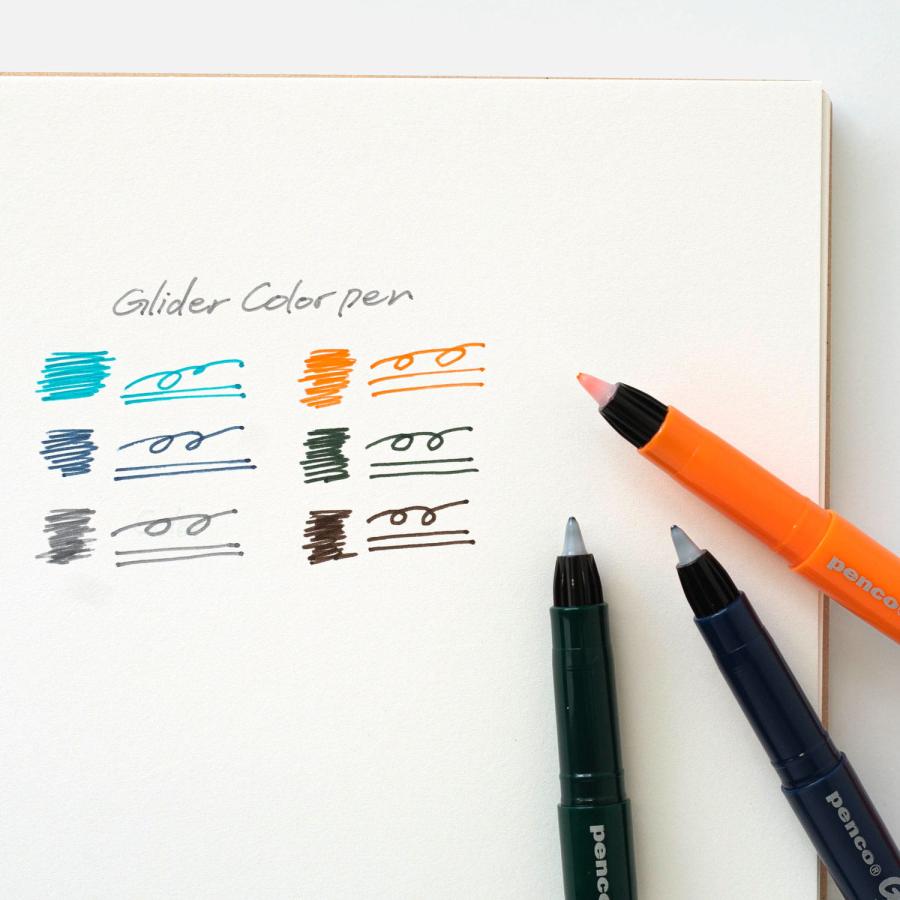 Glider Color pen
penco
penco
penco®